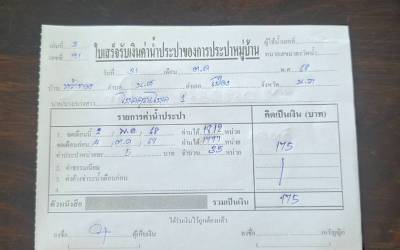 เล่มที่ 3
ใบเสร็จรับเงินค่าน้ำประปาของการประปาหมู่บ้าน
เลขที่ 91
ผู้ใช้น้ำเลขที่
หมายเลขมาตรวัดน้ำ
วันที่ 21 เดือน ต.ค. พ.ศ. 68
บ้าน ตำบล อำเภอ เมือง จังหวัด
นาย/นาง/นางสาว
รายการค่าน้ำประปา
คิดเป็นเงิน (บาท)
1. จดเดือนนี้ 2 พ.ย. 68 อ่านได้ 1912 หน่วย
จดเดือนก่อน ต.ค. อ่านได้ 1877 หน่วย
ค่าน้ำประปาหน่วยละ 5 บาท จำนวน 35 หน่วย
175
2. ค่าธรรมเนียม
3. ค่าค้างชำระน้ำเดือนก่อน
ตัวหนังสือ
รวมเป็นเงิน
175
ได้รับเงินไว้ถูกต้องแล้ว
ลงชื่อ
ผู้เก็บเงิน
ลงชื่อ
เหรัญญิก